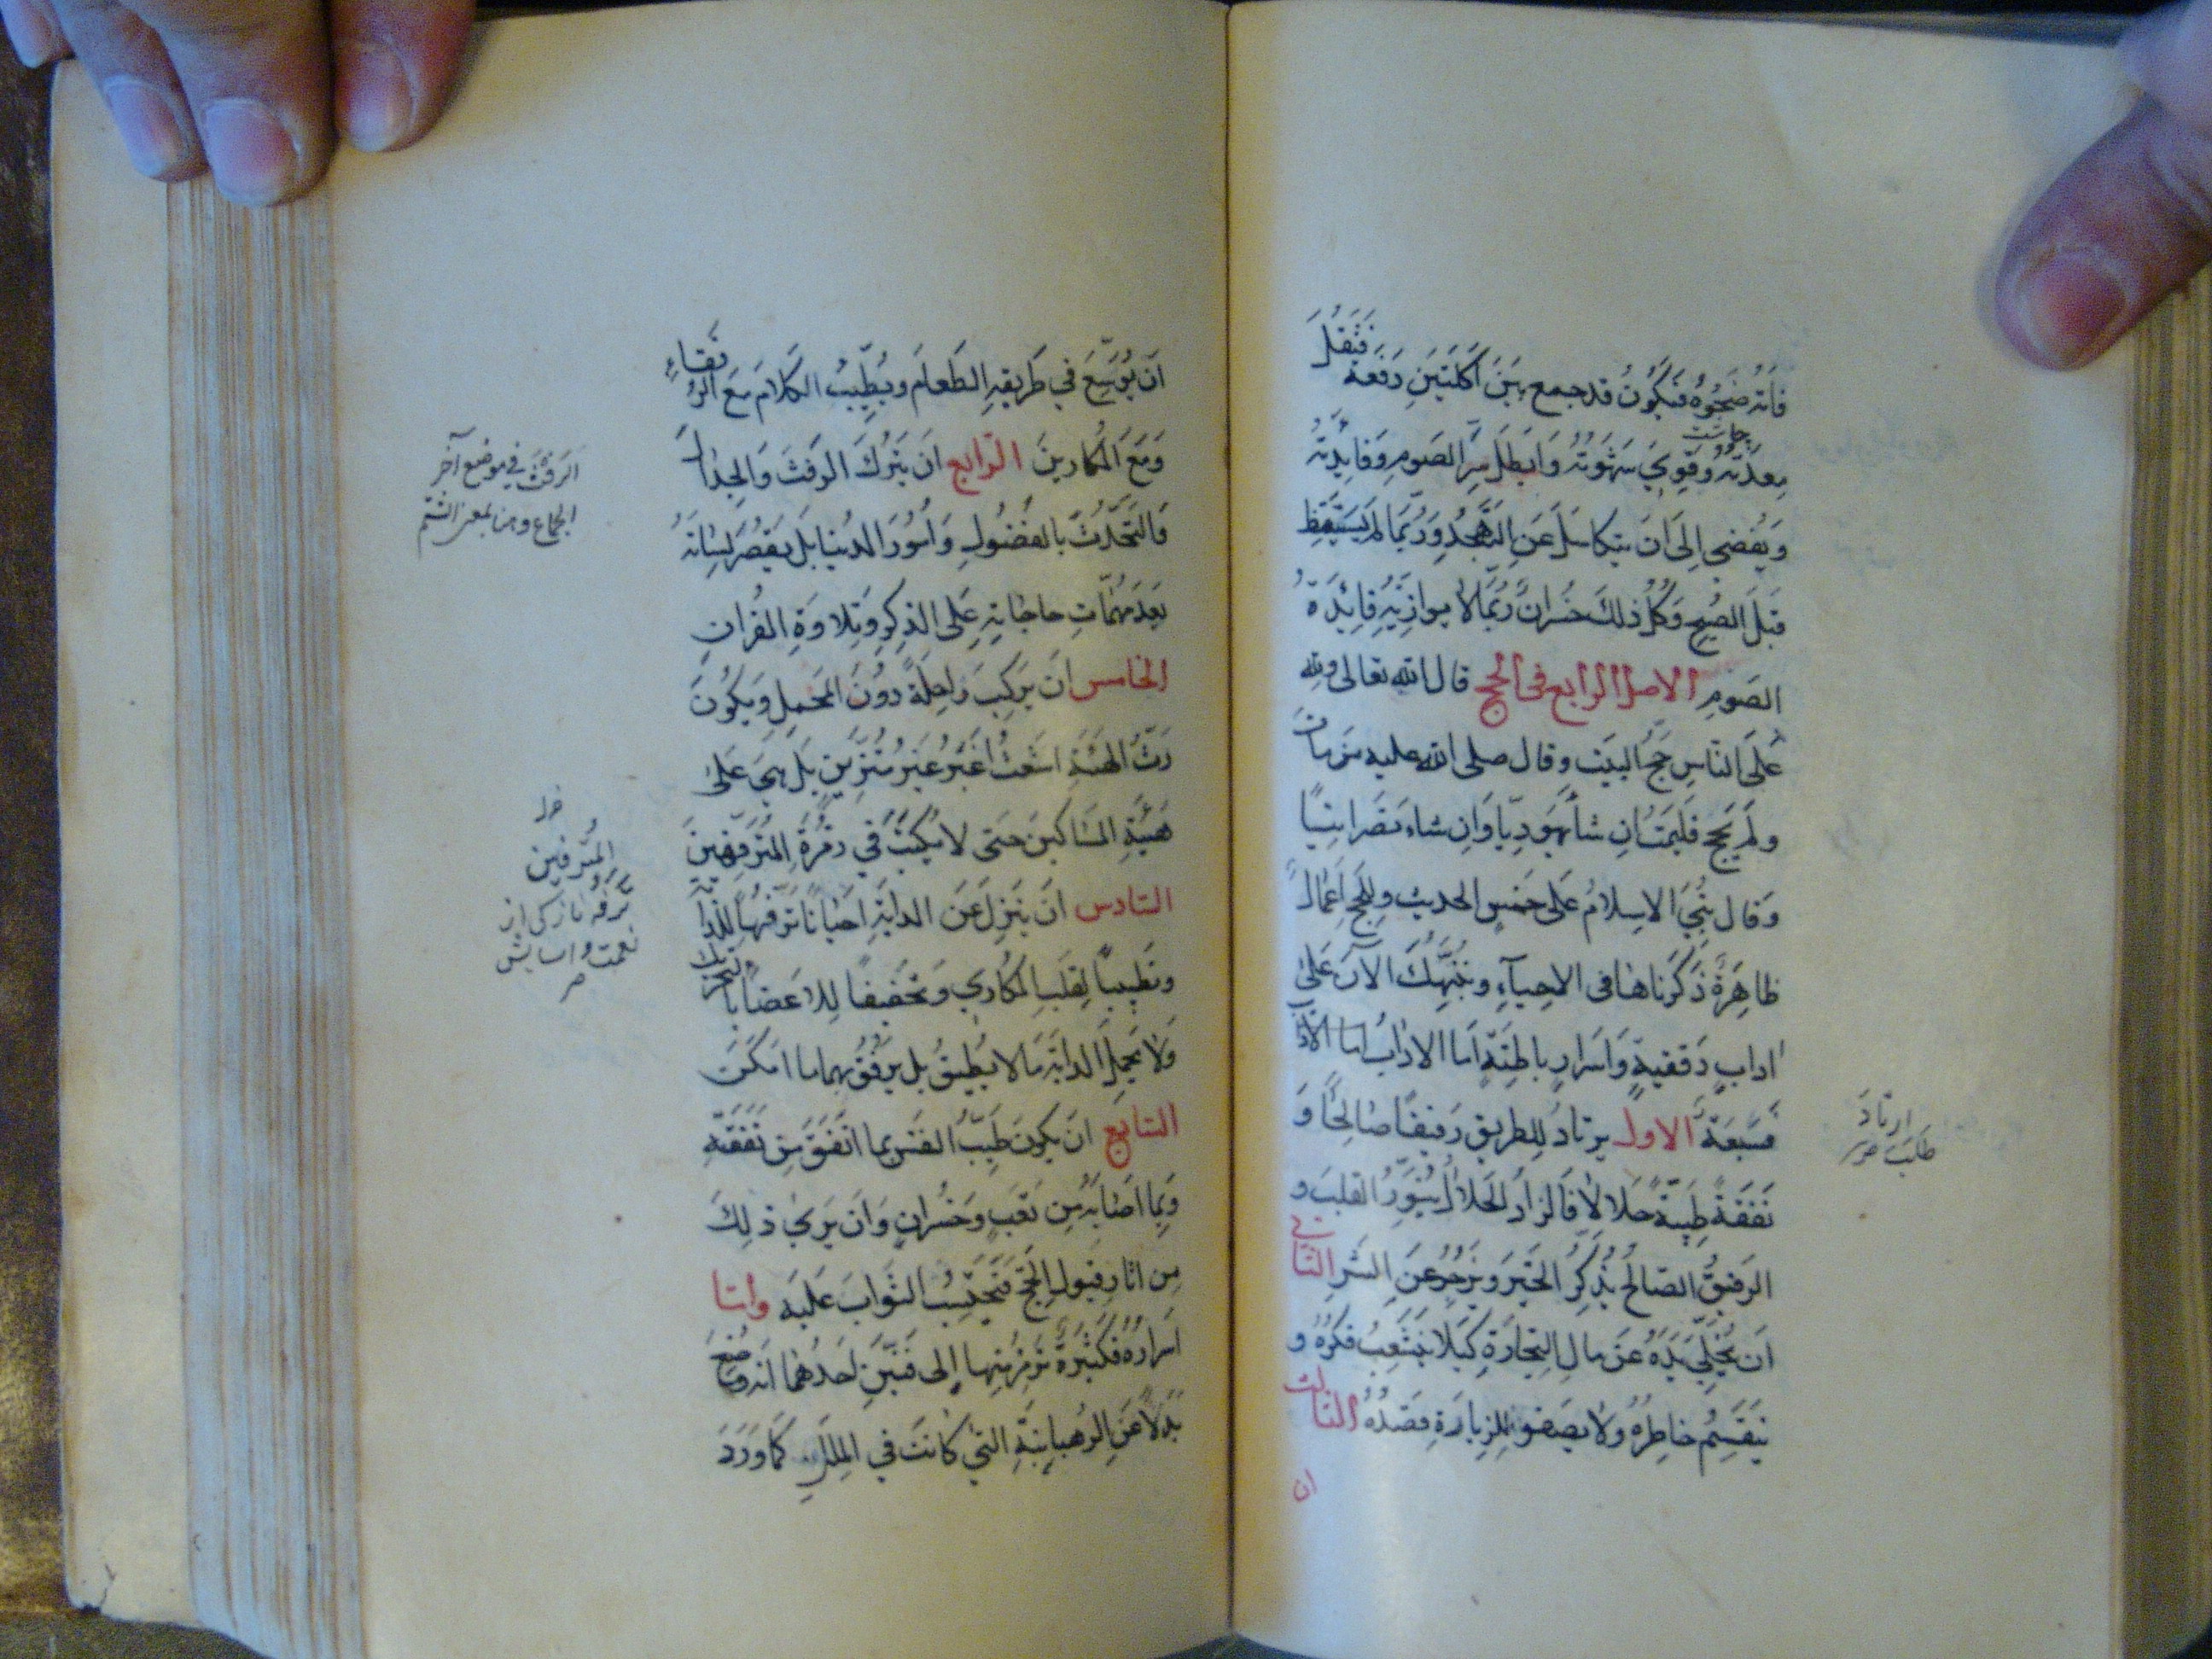 فاته ضحوةً فيكون قد جمع بين اكلتين دفعة فتثقل
معدته وقوي شهوته وابطل سر الصوم وفائدته
چاشت
ويفضي الى ان يتكاسل عن التهجد وربما لم يستيقظ
قبل الصبح وكل ذلك خسران ربما لا يوازنه فائدة
الصوم الاصل الرابع في الحج قال الله تعالى ولله
على الناس حج البيت وقال صلى الله عليه من مات
ولم يحج فليمت ان شاء يهوديا وان شاء نصرانيا
وقال بني الاسلام على خمس الحديث وللحج اعمال
ظاهرة ذكرناها في الاحياء وننبهك الآن على
اداب دقيقة واسرار باطنة اما الاداب اما الاداب
فسبعة الاول يرتاد للطريق رفيقا صالحا و
نفقة طيبة حلالا فالزاد الحلال ينور القلب و
الرفيق الصالح يذكر الخير ويزجر عن الشر الثاني
ان يخلي يده عن مال التجارة كيلا يتشعب فكره و
ينقسم خاطره ولا يصفو للزيارة قصده الثالث
ان
ارتاد
طلب
ان يوسع في طريقه الطعام ويطيب الكلام مع الرفقاء
ومع المكارين الرابع ان يترك الرفث والجدال
والتحدث بالفضول وامور الدنيا بل يقصر لسانه
بعد مهمات حاجاته على الذكر وتلاوة القران
الخامس ان يركب راحلة دون المحمل ويكون
رث الهيئة اشعث اغبر غير متزين بل هي على
هيئة المساكين حتى لا يكتب في زمرة المترفهين
السادس ان ينزل عن الدابة احيانا ترفيها للدابة
وتطييبا لقلب المكاري وتخفيفا للاعضاء بالتحريك
ولا يحمل الدابة ما لا يطيق بل يرفق بهما ما امكن
السابع ان يكون طيب النفس بما انفق من نفقة
وبما اصابه من تعب وخسران وان يرى ذلك
من اثار قبول الحج فيحتسب الثواب عليه واما
اسراره فكثيرة نرمز منها الى فنين احدهما انه وضع
بدلا عن الرهبانية التي كانت في الملل كما ورد
الرفث في موضع آخر
الجماع وهنا بمعنى الشتم
المترفين
ترفه نازكى از
نعمت و اسايش